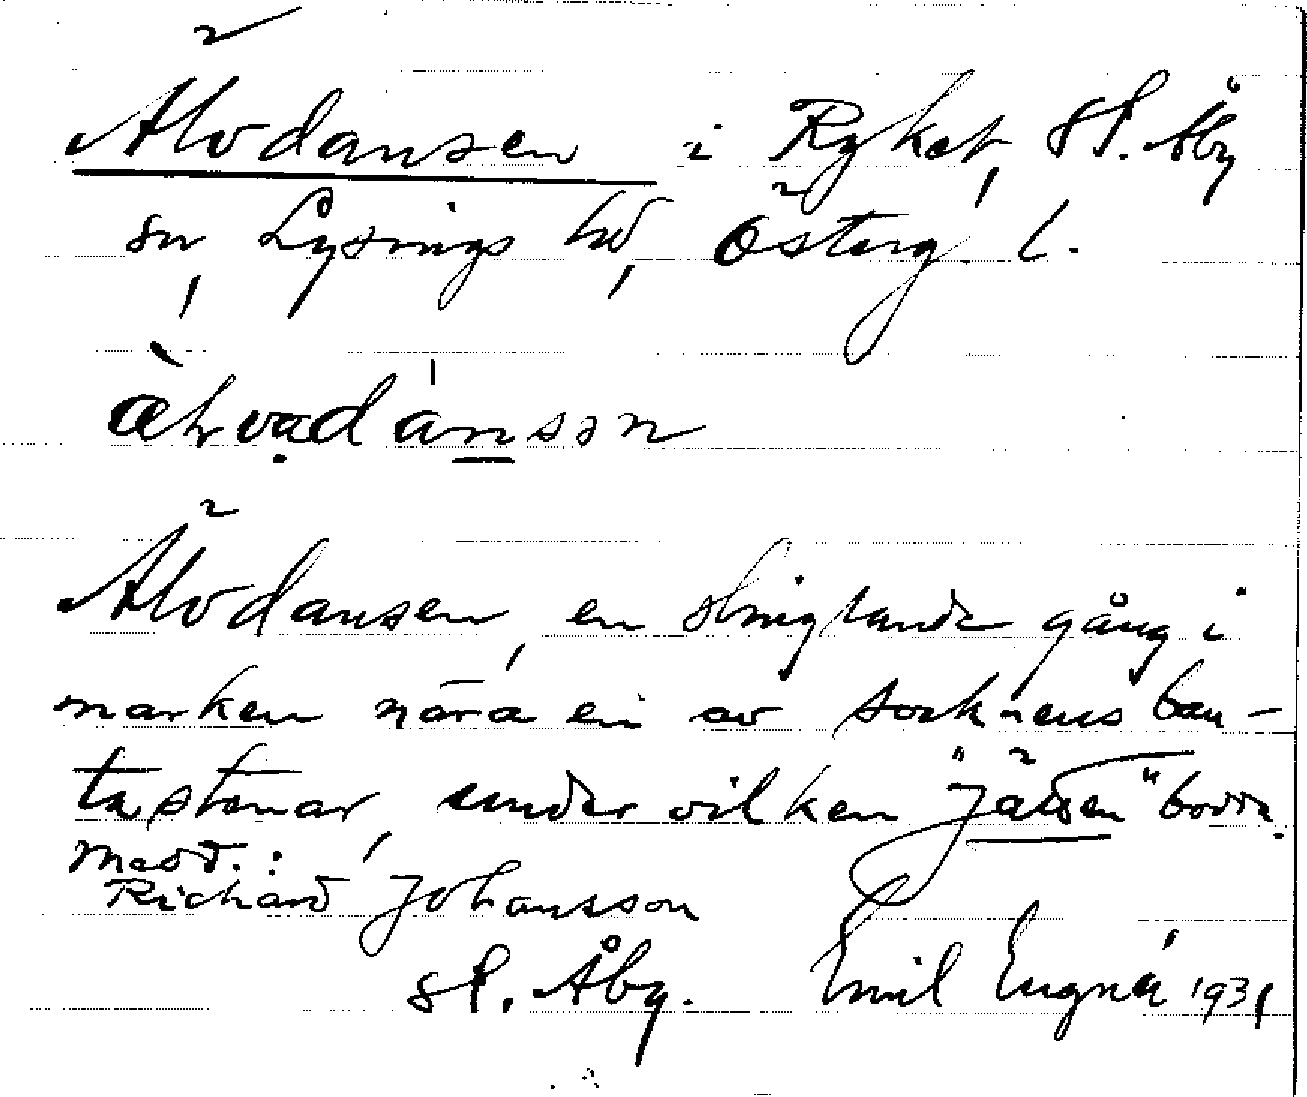 Älvdansen i Ryket, St. Åby
sn, Lysings hd, Österg. l.
Älvdansen, en slinglande gång i
marken nära en av socknens bau-
tastenar, under vilken "Jätten" bodde.
Medd.:
Richard Johansson
St. Åby. Emil Engnér 1931